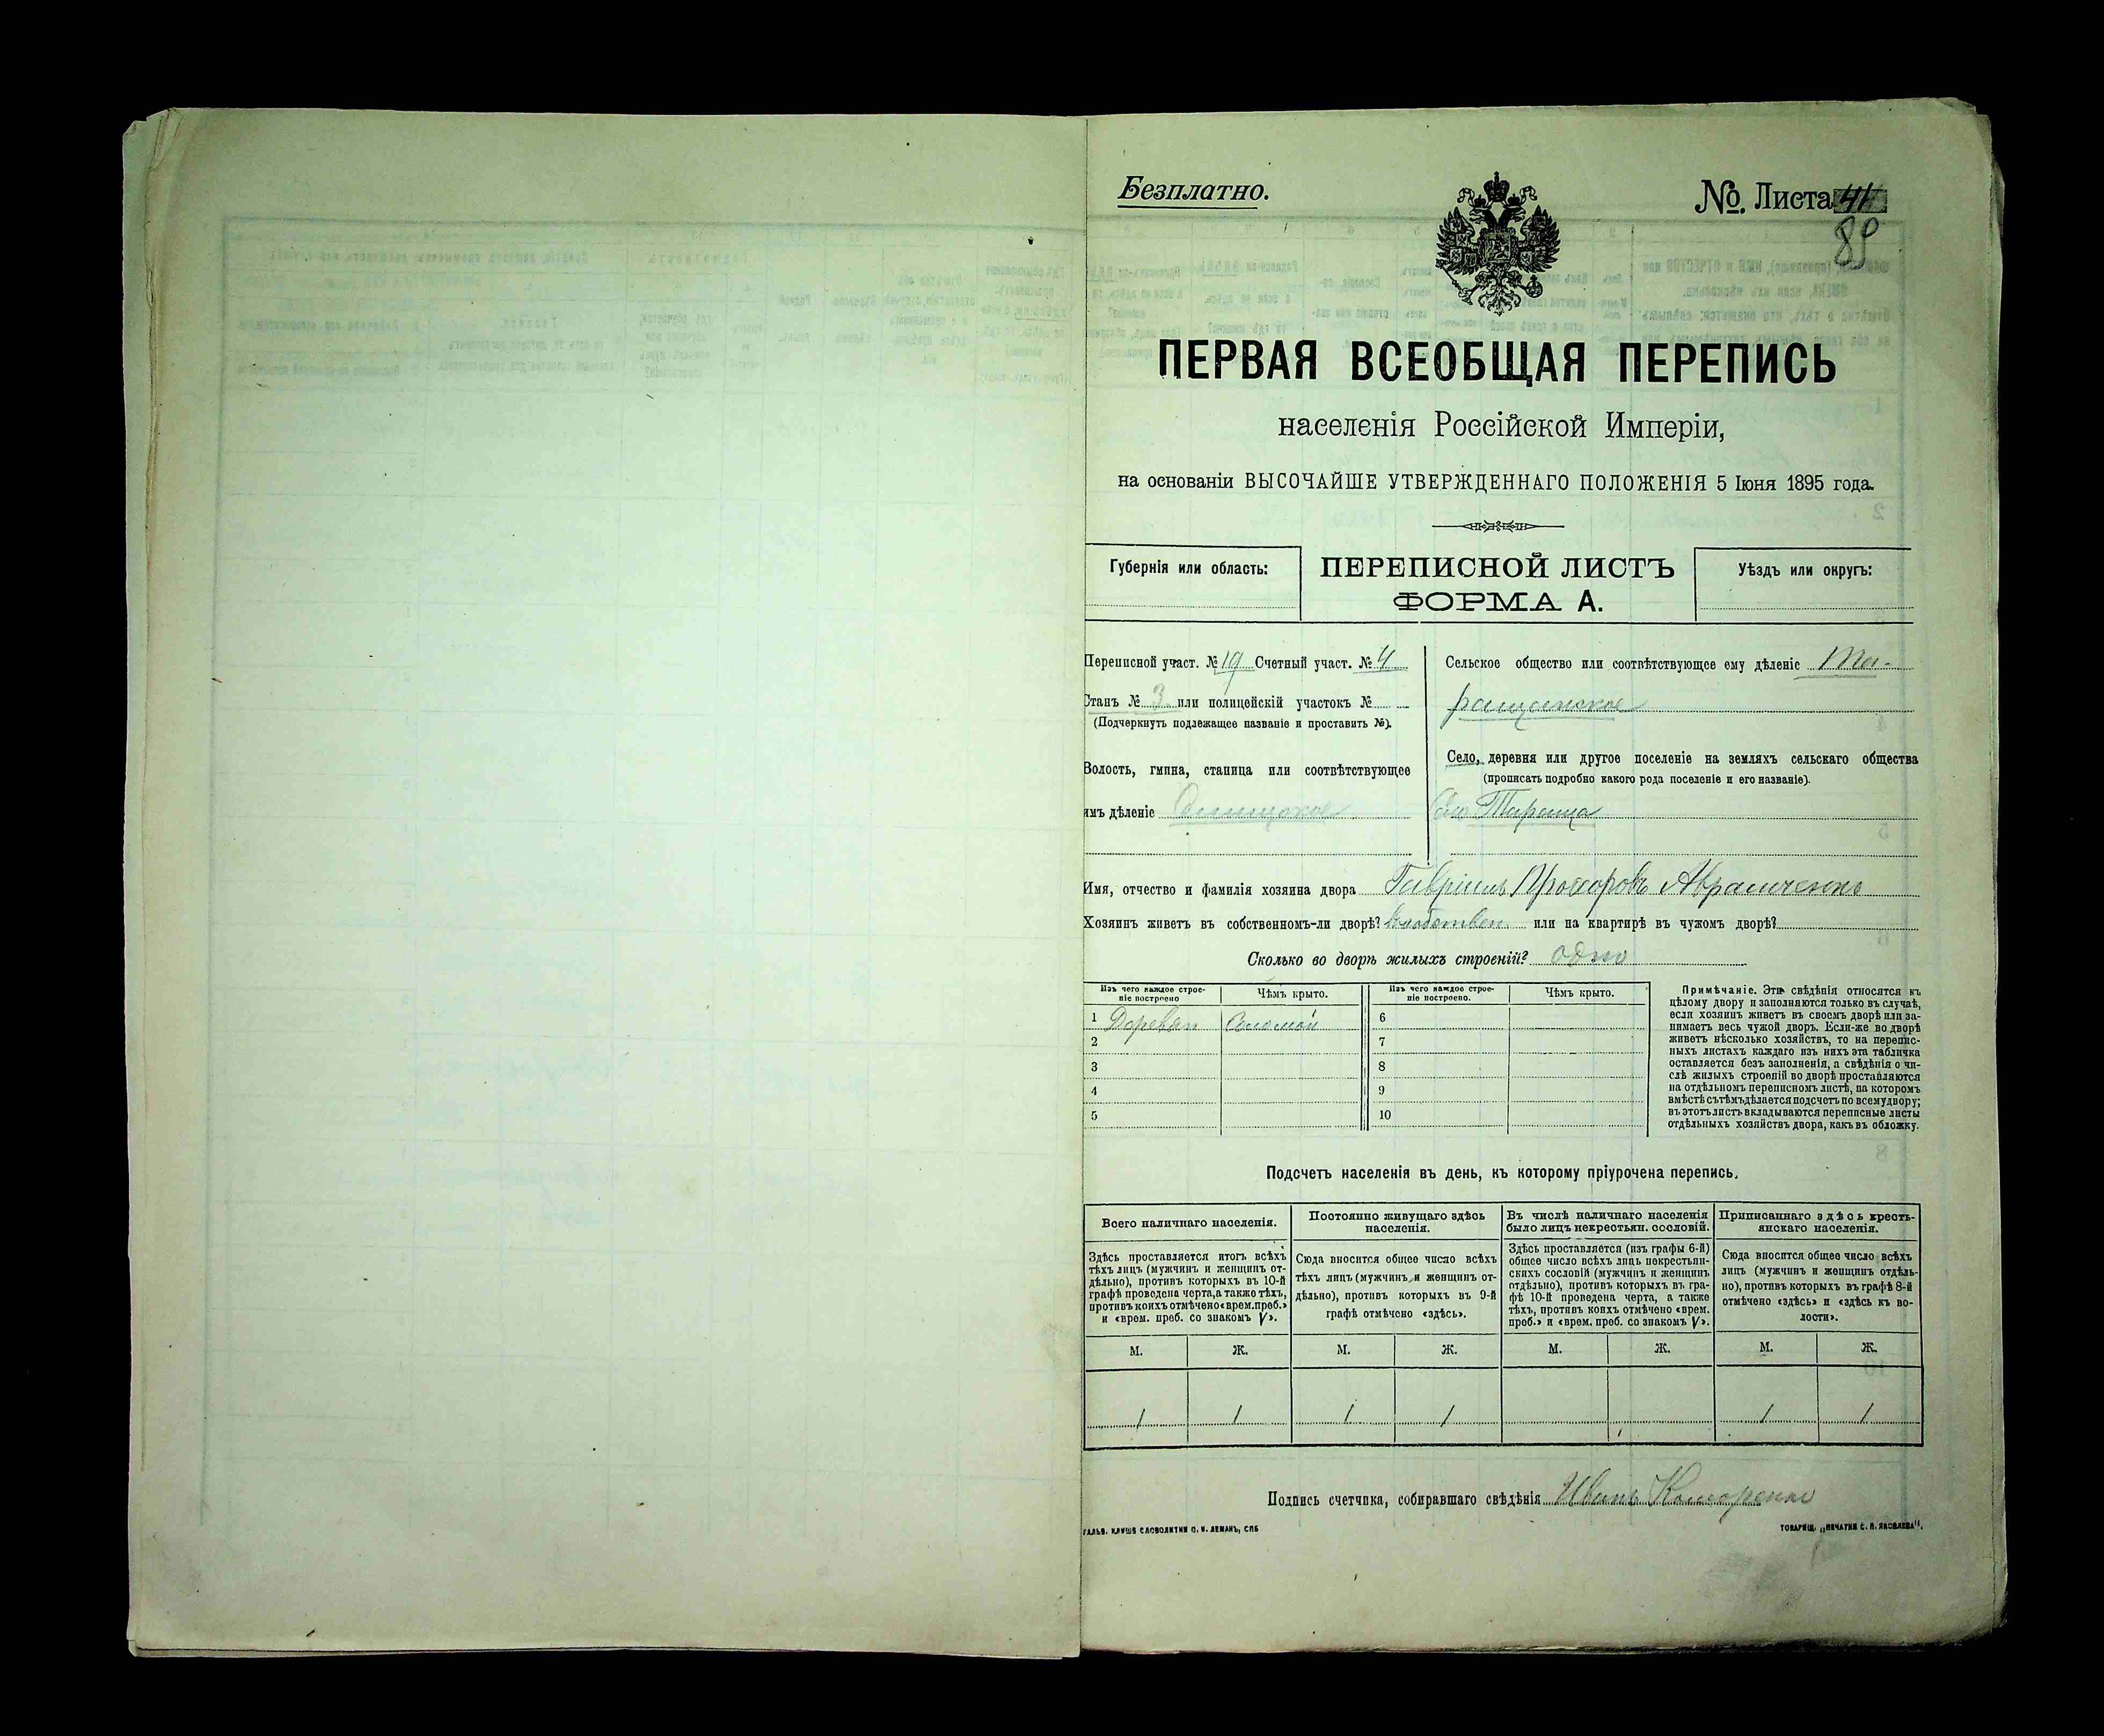 Безплатно.
№. Листа 41
89
ПЕРВАЯ ВСЕОБЩАЯ ПЕРЕПИСЬ
населенія Россійской Имперіи,
на основаніи ВЫСОЧАЙШЕ УТВЕРЖДЕННАГО ПОЛОЖЕНІЯ 5 Іюня 1895 года.
Губернія или область:
ПЕРЕПИСНОЙ ЛИСТЪ
ФОРМА А.
Уѣздъ или округъ:
Переписной участ. № 19 Счетный участ. № 4
Станъ № 3 или полицейскій участокъ №
(Подчеркнуть подлежащее названіе и проставить №).
Волость, гмина, станица или соотвѣтствующее
имъ дѣленіе
Сельское общество или соотвѣтствующее ему дѣленіе Та-
ращанское
Село, деревня или другое поселеніе на земляхъ сельскаго общества
(прописать подробно какого рода поселеніе и его названіе).
Тараща
Имя, отчество и фамилія хозяина двора Гавріилъ Прохоровъ Авраменко
Хозяинъ живетъ въ собственномъ-ли дворѣ? въ собствен. или на квартирѣ въ чужомъ дворѣ?
Сколько во дворѣ жилыхъ строеній? одно
Изъ чего каждое строе-
ніе построено
Чѣмъ крыто.
Изъ чего каждое строе-
ніе построено.
Чѣмъ крыто.
1 Деревян Соломой 6
2 7
3 8
4 9
5 10
Примѣчаніе. Эти свѣдѣнія относятся къ
цѣлому двору и заполняются только въ случаѣ,
если хозяинъ живетъ въ своемъ дворѣ или за-
нимаетъ весь чужой дворъ. Если-же во дворѣ
живетъ нѣсколько хозяйствъ, то на перепис-
ныхъ листахъ каждаго изъ нихъ эта табличка
оставляется безъ заполненія, а свѣдѣнія о чи-
слѣ жилыхъ строеній во дворѣ проставляются
на отдѣльномъ переписномъ листѣ, на которомъ
вмѣстѣ съ тѣмъ дѣлается подсчетъ по всему двору;
въ этотъ листъ вкладываются переписные листы
отдѣльныхъ хозяйствъ двора, какъ въ обложку.
Подсчетъ населенія въ день, къ которому пріурочена перепись.
Всего наличнаго населенія.
Здѣсь проставляется итогъ всѣхъ
тѣхъ лицъ (мужчинъ и женщинъ от-
дѣльно), противъ которыхъ въ 10-й
графѣ проведена черта, а также тѣхъ,
противъ коихъ отмѣчено «врем. преб.»
и «врем. преб. со знакомъ V».
Постоянно живущаго здѣсь
населенія.
Сюда вносится общее число всѣхъ
тѣхъ лицъ (мужчинъ и женщинъ от-
дѣльно), противъ которыхъ въ 9-й
графѣ отмѣчено «здѣсь».
Въ числѣ наличнаго населенія
было лицъ некрестьян. сословій.
Здѣсь проставляется (изъ графы 6-й)
общее число всѣхъ лицъ некрестьян-
скихъ сословій (мужчинъ и женщинъ
отдѣльно), противъ которыхъ въ гра-
фѣ 10-й проведена черта, а также
тѣхъ, противъ коихъ отмѣчено «врем.
преб.» и «врем. преб. со знакомъ V».
Приписаннаго здѣсь кресть-
янскаго населенія.
Сюда вносится общее число всѣхъ
лицъ (мужчинъ и женщинъ отдѣль-
но), противъ которыхъ въ графѣ 8-й
отмѣчено «здѣсь» и «здѣсь къ во-
лости».
М. Ж. М. Ж. М. Ж. М. Ж.
1 1 1 1 1 1
Подпись счетчика, собиравшаго свѣдѣнія Иванъ
ГАЛЬВ. КЛИШЕ СЛОВОЛИТНИ О. И. ЛЕМАНЪ, СПБ
ТОВАРИЩ. „ПЕЧАТНЯ С. П. ЯКОВЛЕВА".